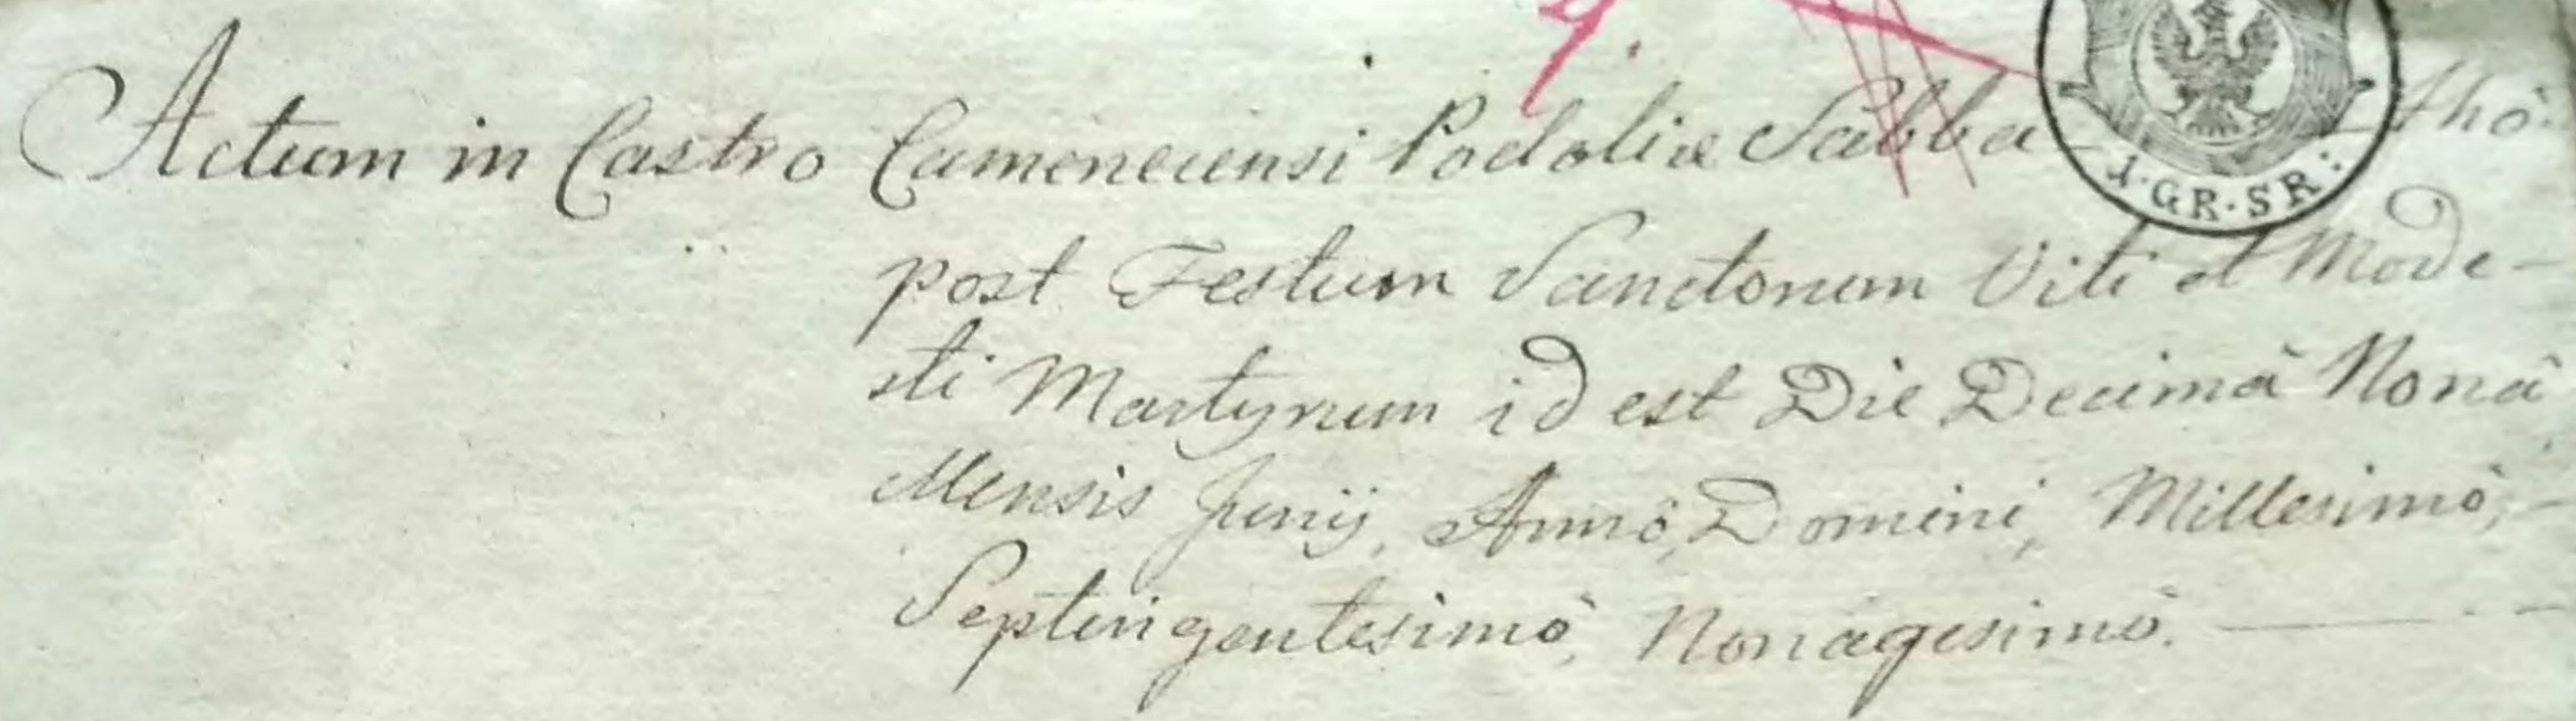 4.
Actum in Castro Camenecensi Podoliæ Sabba- -thô
post Festum Sanctorum Viti et Mode-
sti Martyrum id est Die Decimâ Nonâ
Mensis Junij, Annô, Domini, Millesimô,-
Septingentesimô, Nonagesimô.
1·GR·SR: